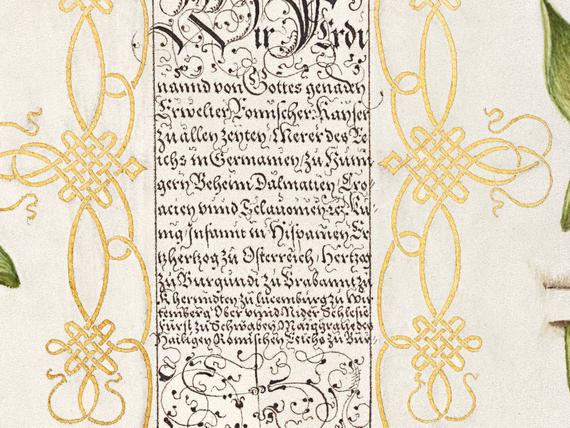 Wir Ferdi
nannd von Gottes genaden
Erwelter Romischer Kayser
Zu allen zeyten Merer des Re
ichs in Germanien, zu Hun
gern Beheim Dalmatien Cro
atien vnnd Sclauonien rc. Kü
nig Infannt in Hispanien Er
tzhertzog zu Osterreich, Hertzog
zu Burgundt zu Brabannt zu
Kherundten zu lucemburg zu Wir
temberg Ober vnnd Nider Schlesie
fürst zu Schwaben Marggraue des
Hailigen Römischen Reichs zu Bur